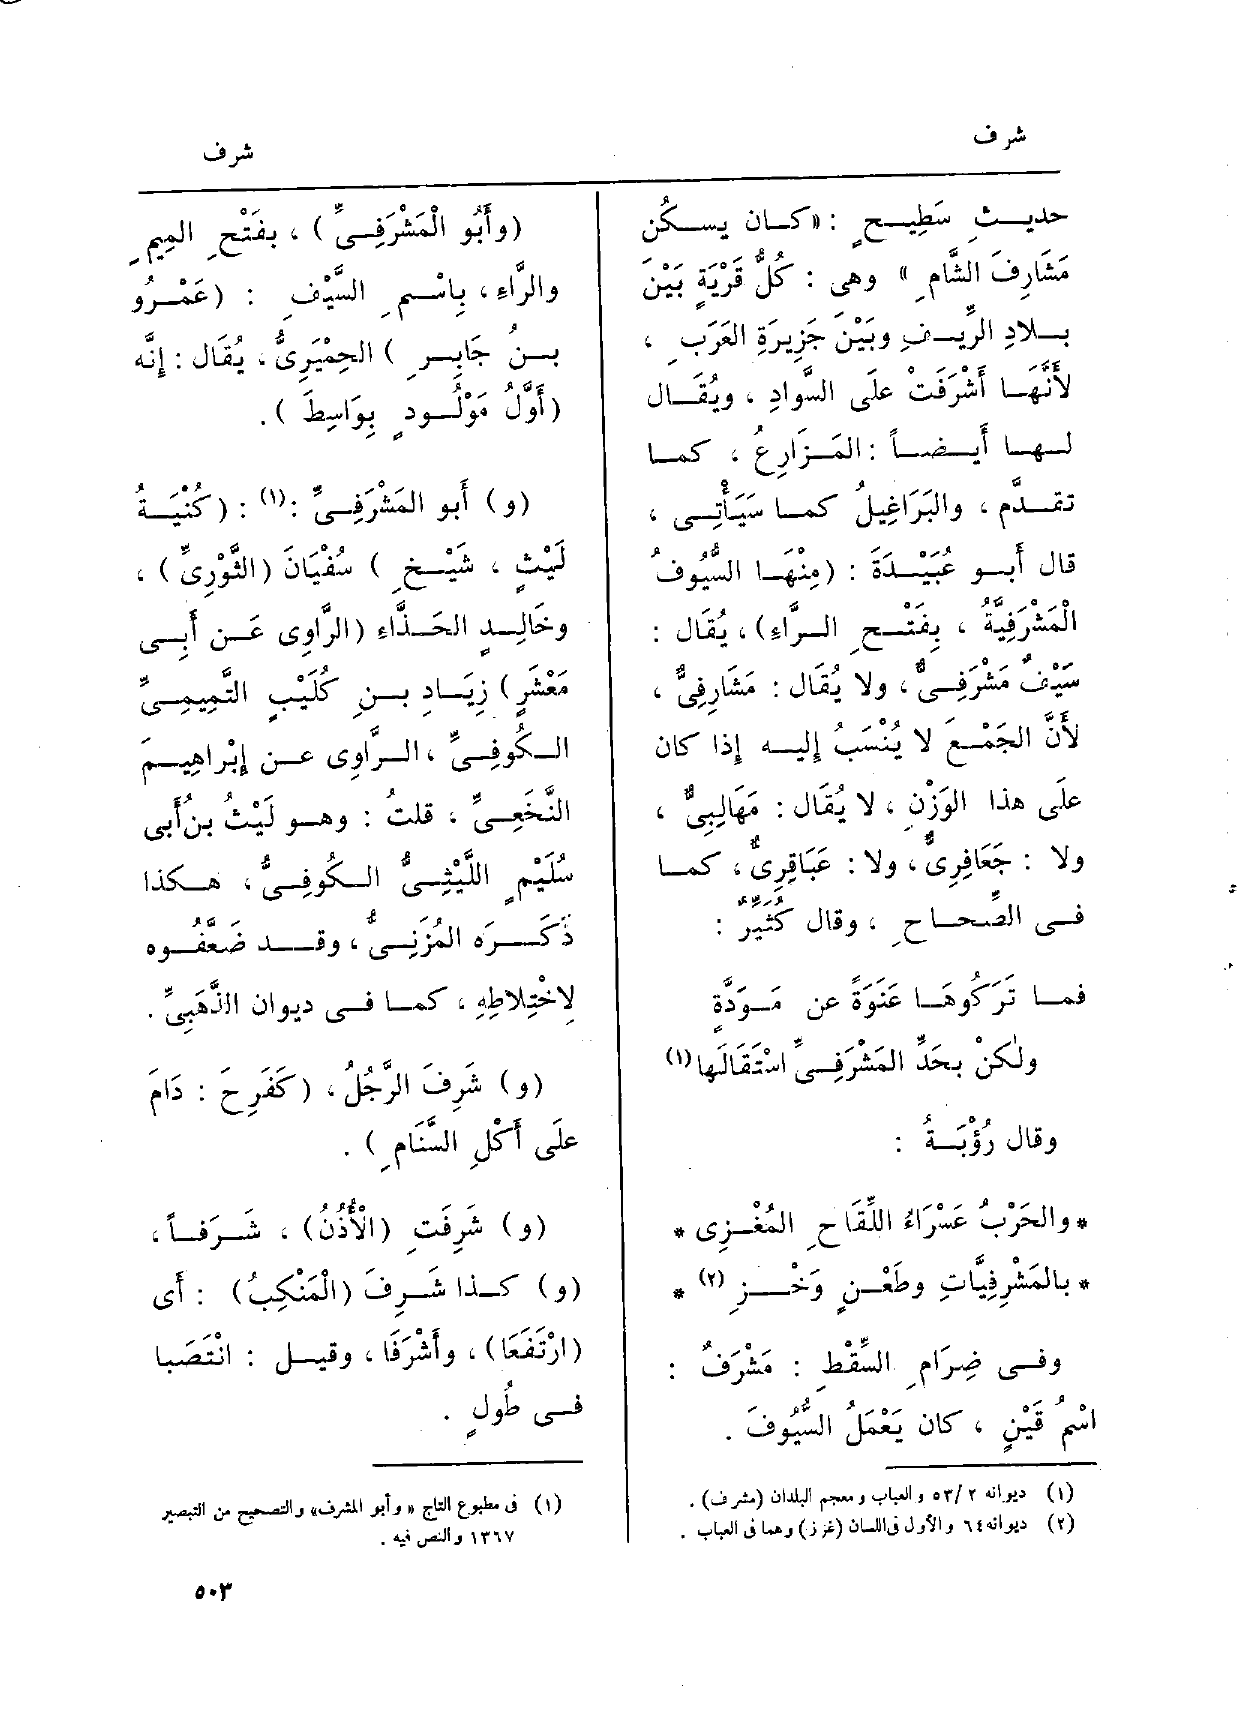 شرف
شرف
حديثِ سَطِيحٍ : «كان يسكُن
مَشَارِفَ الشَّامِ » وهى : كُلُّ قَرْيَةٍ بَيْنَ
بلادِ الرِّيفِ وبَيْنَ جَزِيرَةِ العَرَبِ ،
لأَنَّهَا أَشْرَفَتْ علَى السَّوادِ ، ويُقَال
لها أيضاً : المَزَارِعُ ، كما
تقدَّم ، والبَرَاغِيلُ كما سَيَأْتِى ،
قال أَبو عُبَيْدَةَ : (مِنْهَا السُّيُوفُ
الْمَشْرَفِيَّةُ ، بِفَتْحِ الرَّاءِ) ، يُقَال :
سَيْفٌ مَشْرَفِىٌّ ، ولا يُقَال : مَشَارِفِىٌّ ،
لأَنَّ الجَمْعَ لا يُنْسَبُ إليه إذا كان
علَى هذا الوَزْنِ ، لا يُقَال : مَهَالِبِىٌّ ،
ولا : جَعَافِرِىٌّ ، ولا : عَبَاقِرِىٌّ ، كما
فى الصِّحاحِ ، وقال كُثَيِّرٌ :
فما تَرَكُوهَا عَنْوَةً عن مَوَدَّةٍ
ولٰكنْ بحَدِّ المَشْرَفِىِّ اسْتَقَالَها(١)
وقال رُؤْبَةُ :
* والحَرْبُ عَسْرَاءُ اللِّقَاحِ المُغْزِى *
* بالمَشْرَفِيَّاتِ وطَعْنٍ وَخْزِ (٢) *
وفى ضِرَامِ السِّقْطِ : مَشْرَفٌ :
اسْمُ قَيْنٍ ، كان يَعْمَلُ السُّيُوفَ .
(١) ديوانه ٥٣/٢ والعباب ومعجم البلدان (مشرف) .
(٢) ديوانه ٦٤ والأول فى اللسان (غزز) وهما فى العباب .
(وأَبُو الْمَشْرَفِىِّ) ، بفَتْحِ المِيمِ
والرَّاءِ ، بِاسْمِ السَّيْفِ : (عَمْرُو
بنُ جَابِرِ ) الحِمْيَرِىُّ ، يُقَال : إِنَّه
(أَوَّلُ مَوْلُودٍ بِوَاسِطَ ) .
(و) أَبو المَشْرَفِىِّ :(١) : (كُنْيَةُ
لَيْثٍ ، شَيْخِ ) سُفْيَانَ (الثَّوْرِىِّ) ،
وخَالِدٍ الحَذَّاءِ (الرَّاوِى عَن أَبِى
مَعْشَرٍ) زِيَادِ بنِ كُلَيْبٍ التَّمِيمِىِّ
الكُوفِىِّ ، الرَّاوِى عن إِبْرَاهِيمَ
النَّخَعِىِّ ، قلتُ : وهو لَيْثُ بنُ أَبى
سُلَيْمٍ اللَّيْثِىُّ الكُوفِىُّ ، هكذا
ذَكَرَه المُزَنِىُّ ، وقد ضَعَّفُوه
لِاخْتِلاطِهِ ، كما فى ديوان الذَّهَبِىِّ .
(و) شَرِفَ الرَّجُلُ ، (كَفَرِحَ : دَامَ
علَى أَكْلِ السَّنَامِ ) .
(و) شَرِفَتِ (الْأُذُنُ) ، شَرَفاً ،
(و) كذا شَرِفَ (الْمَنْكِبُ) : أَى
(ارْتَفَعَا) ، وأَشْرَفَا ، وقيل : انْتَصَبا
فى طُولٍ .
(١) فى مطبوع التاج « وأبو المشرف» والتصحيح من التبصير
١٣٦٧ والنص فيه .
٥٠٣